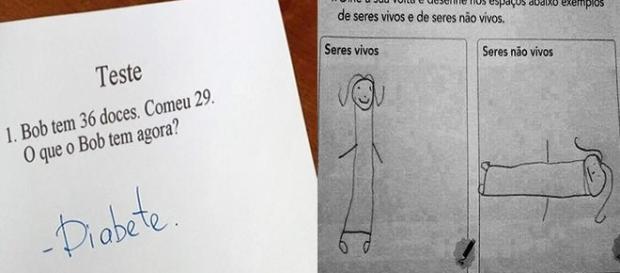 Teste
1. Bob tem 36 doces. Comeu 29.
O que o Bob tem agora?
- Diabete.
sua volta e desenhe nos espaços abaixo exemplos
de seres vivos e de seres não vivos.
Seres vivos
Seres não vivos